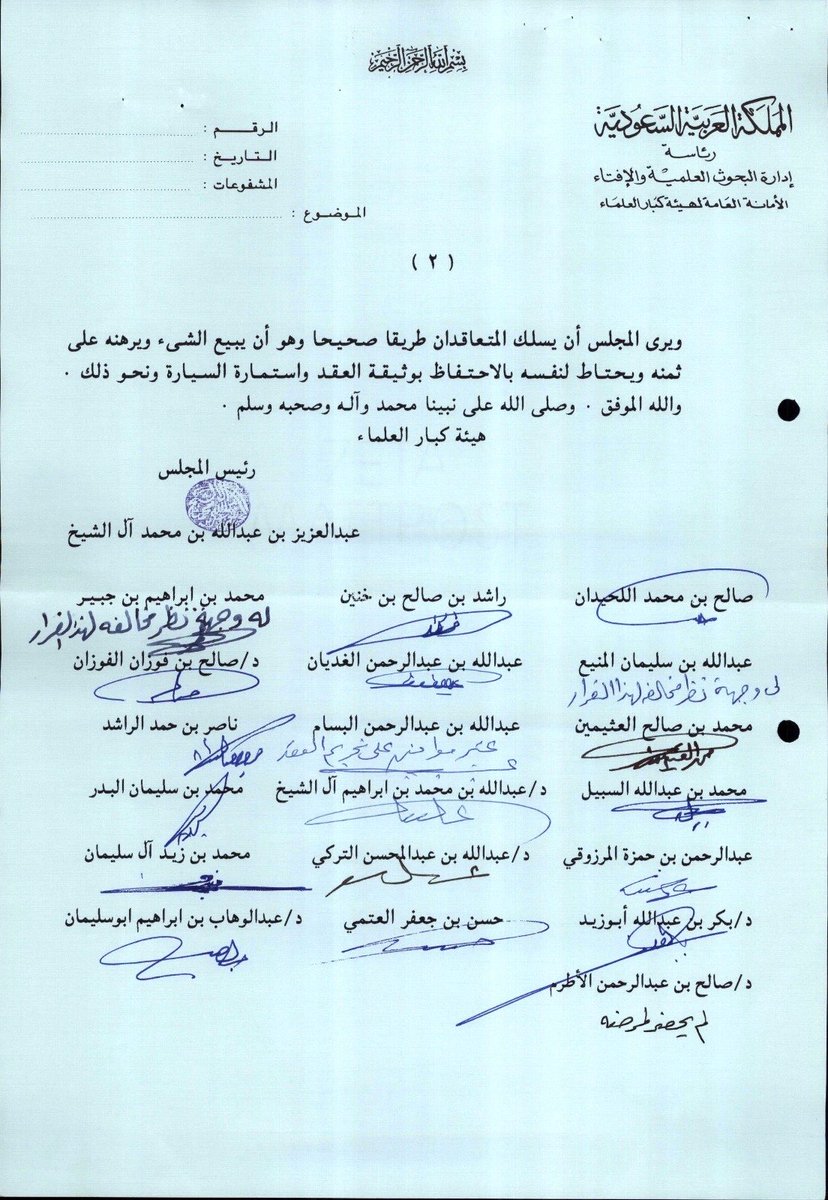 بسم الله الرحمن الرحيم
المملكة العربية السعودية
رئاسة
إدارة البحوث العلمية والإفتاء
الأمانة العامة لهيئة كبار العلماء
الرقم :
التاريخ :
المشفوعات :
الموضوع :
( ٢ )
ويرى المجلس أن يسلك المتعاقدان طريقا صحيحا وهو أن يبيع الشىء ويرهنه على
ثمنه ويحتاط لنفسه بالاحتفاظ بوثيقة العقد واستمارة السيارة ونحو ذلك .
والله الموفق . وصلى الله على نبينا محمد وآله وصحبه وسلم .
هيئة كبار العلماء
رئيس المجلس
عبدالعزيز بن عبدالله بن محمد آل الشيخ
صالح بن محمد اللحيدان راشد بن صالح بن خنين محمد بن ابراهيم بن جبير
له وجهة نظر مخالفه لهذا القرار
عبدالله بن سليمان المنيع عبدالله بن عبدالرحمن الغديان د/صالح بن فوزان الفوزان
لي وجهة نظر مخالفه لهذا القرار
محمد بن صالح العثيمين عبدالله بن عبدالرحمن البسام ناصر بن حمد الراشد
غير موافق على تحريم العقد
محمد بن عبدالله السبيل د/عبدالله بن محمد بن ابراهيم آل الشيخ محمد بن سليمان البدر
عبدالرحمن بن حمزة المرزوقي د/عبدالله بن عبدالمحسن التركي محمد بن زيد آل سليمان
د/بكر بن عبدالله أبوزيد حسن بن جعفر العتمي د/عبدالوهاب بن ابراهيم ابوسليمان
د/صالح بن عبدالرحمن الأطرم
لم يحضر لمرضه